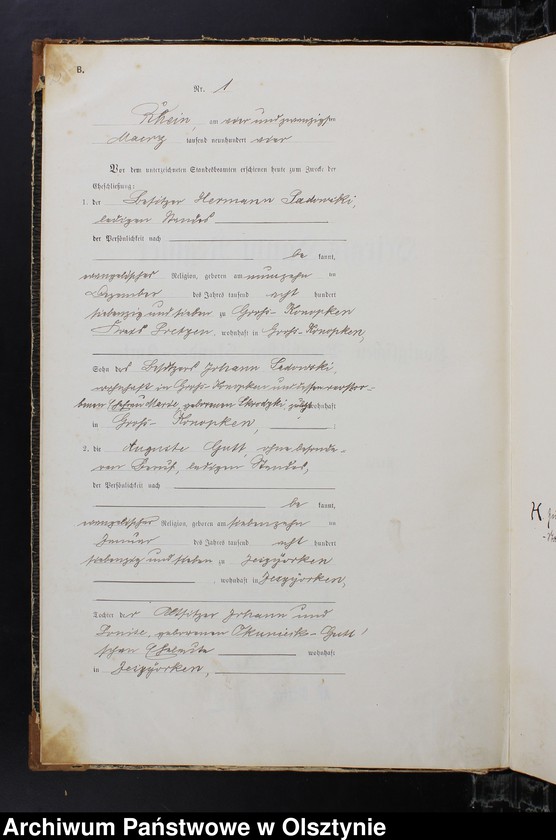 B.
Nr. 1
Rhein, am vier und zwanzigsten
Maerz tausend neunhundert vier
Vor dem unterzeichneten Standesbeamten erschienen heute zum Zwecke der
Eheschließung:
1. der Besitzer Hermann Sadowski,
ledigen Standes
der Persönlichkeit nach
be kannt,
evangelischer Religion, geboren am neunzehn ten
Dezember des Jahres tausend acht hundert
siebenzig und sieben zu Groß-Konopken
Kreis Loetzen, wohnhaft in Groß-Konopken,
Sohn des Besitzers Johann Sadowski,
wohnhaft in Groß-Konopken und dessen verstor-
benen Ehefrau Marie, geborenen zuletzt wohnhaft
in Groß-Konopken, :
2. die Auguste Gutt, ohne besonde-
ren Beruf, ledigen Standes,
der Persönlichkeit nach
be kannt,
evangelischer Religion, geboren am siebenzehn ten
Januar des Jahres tausend acht hundert
siebenzig und sieben zu
, wohnhaft in
Tochter der Altsitzer Johann und
Louise, geborenen Gutt'
schen Eheleute wohnhaft
in
H
Archiwum Państwowe w Olsztynie